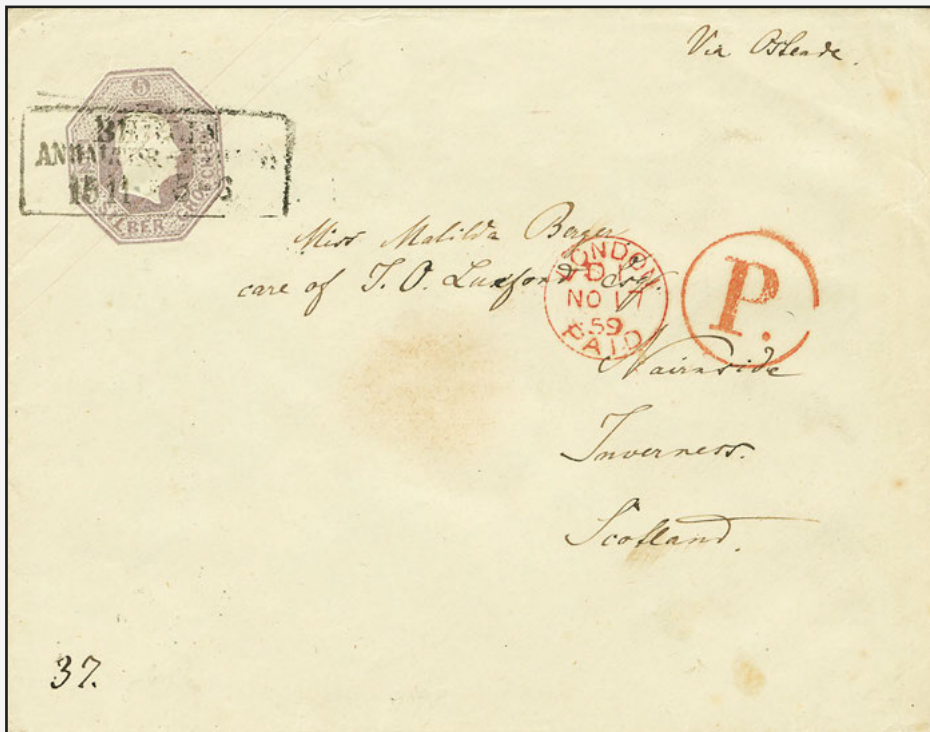 Via Ostende.
5
SILBER GROSCHEN
BERLIN
ANHALTER
15 11 5 6
Miss Matilda Berger
care of T. O. Luxford Esqr.
LONDON
NO 17
59
PAID
P.
Nairnside
Inverness.
Scotland.
37.